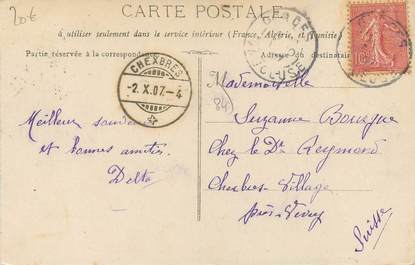 20€
CARTE POSTALE
à utiliser seulement dans le service intérieur (France, Algérie, et Tunisie)
Partie réservée à la correspondance
Adresse du destinataire
CHEXBRES
-2.X.07.-4
84
Meilleur souvenir
et bonnes amitiés
Delta
Mademoiselle
Suzanne
Chez le Dr Reymond
Chexbres-Village
près Vevey
Suisse
10